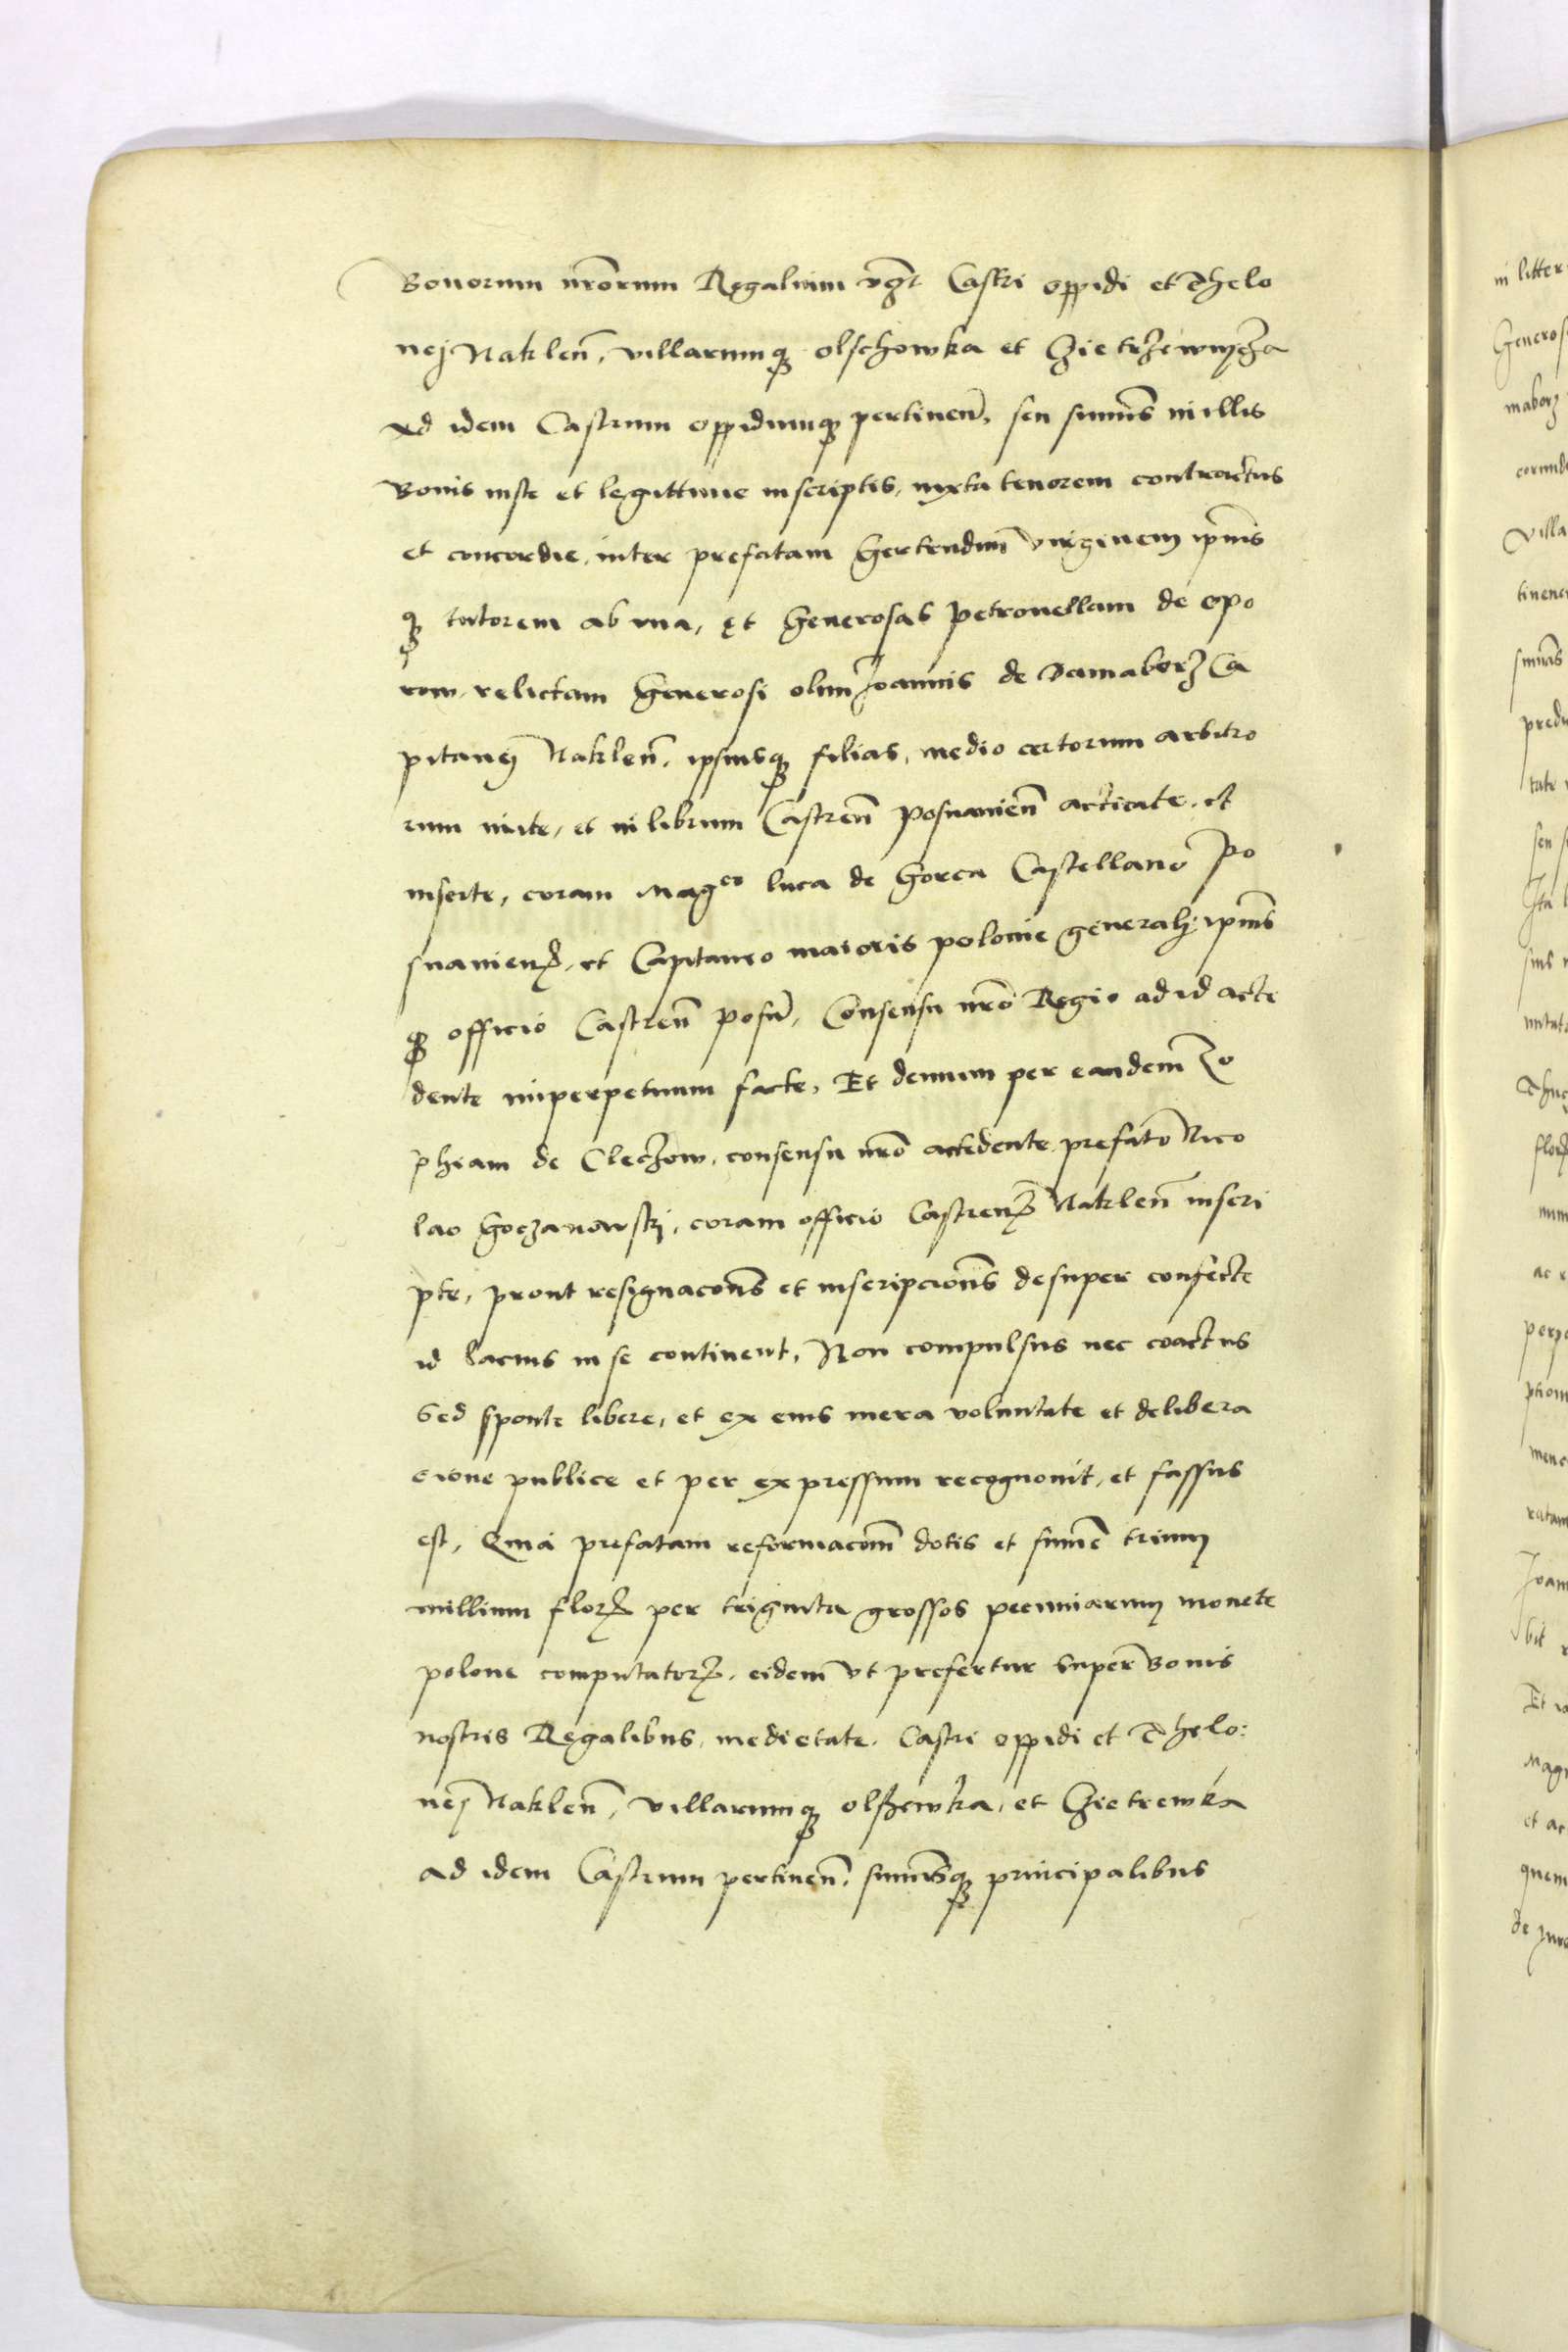 Bonorum nrōrum Regalium vᵹt Castri oppidi et Thelo
nej Naklen̄, villarumqꝫ olschowka et Gietrzewnycza
ad idem Castrum oppidumqꝫ pertinen̄, seu sum̄is in illis
Bonis iuste et legittime inscriptis, iuxta tenorem contractus
et concordie, inter prefatam Gertrudim virginem ipīus
qꝫ tutorem ab vna, et Generosas Petronellam de opo
row, relictam Generosi olim Joannis de Damaborz Ca
pitanej Naklen̄, ipsiusqꝫ filias, medio certorum arbitro
rum inite, et in librum Castren̄ posnanien̄ acticate, et
inserte, coram Magᶜᵒ luca de Gorca Castellano Po
snanienꝭ, et Capitaneo maioris polonie generalj, ipīus
qꝫ officio Castren̄ posn̄, Consensu nrō Regio ad id acce
dente inperpetuum facte, Et demum per eandem Zo
phiam de Cleczow, consensu nrō accedente, prefato Nico
lao Goczanowskj, coram officio Castrenꝭ Naklen̄ inscri
pte, prout resignacōns et inscripcions desuper confecte
id lacius in se continent, Non compulsus nec coactus
Sed sponte libere, et ex eius mera voluntate et delibera
cione publice et per expressum recognouit, et fassus
est, Quia prefatam reformacōm dotis et sum̄e trium
millium florꝭ per triginta grossos pecuniarum monete
polone computatorꝭ, eidem vt prefertur super Bonis
nostris Regalibus, medietate, Castri oppidi et Thelo:
nej Naklen̄, villarumqꝫ olszewka, et Gietrewka
ad idem Castrum pertinen̄, sum̄isqꝫ principalibus